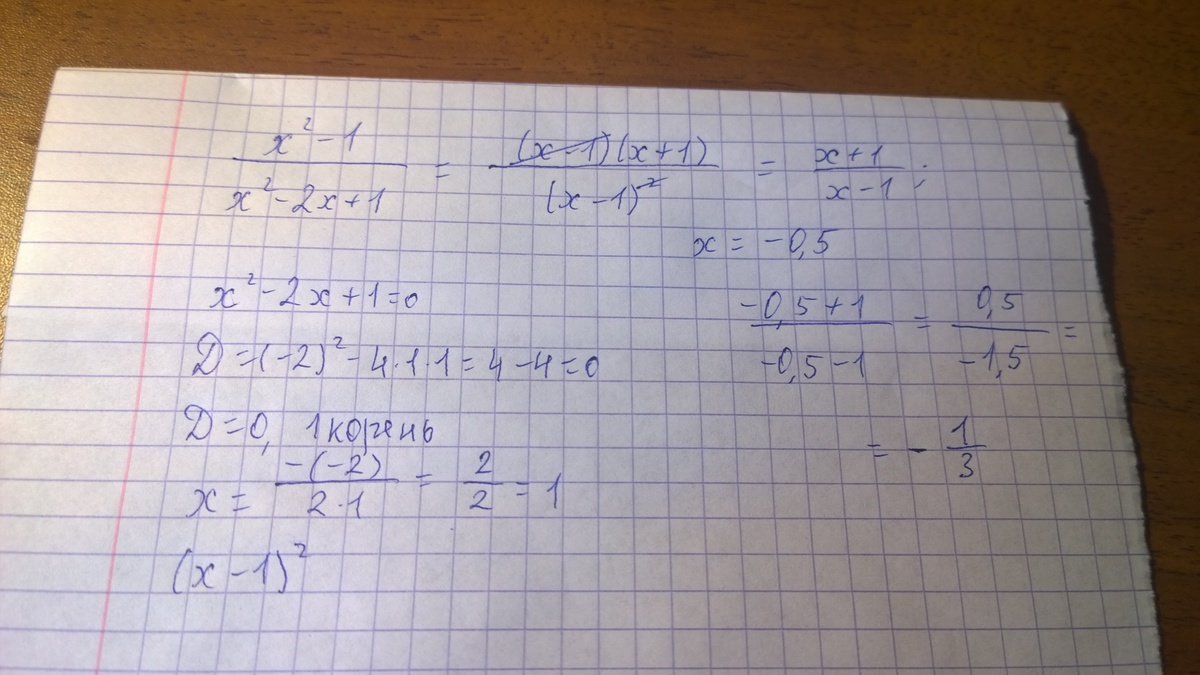 x² - 1 / x² - 2x + 1 = (x - 1)(x + 1) / (x - 1)² = x + 1 / x - 1 ;
x = -0,5
x² - 2x + 1 = 0
-0,5 + 1 / -0,5 - 1 = 0,5 / -1,5 =
D = (-2)² - 4·1·1 = 4 - 4 = 0
D = 0, 1 корень
= - 1/3
x = -(-2) / 2·1 = 2/2 = 1
(x - 1)²